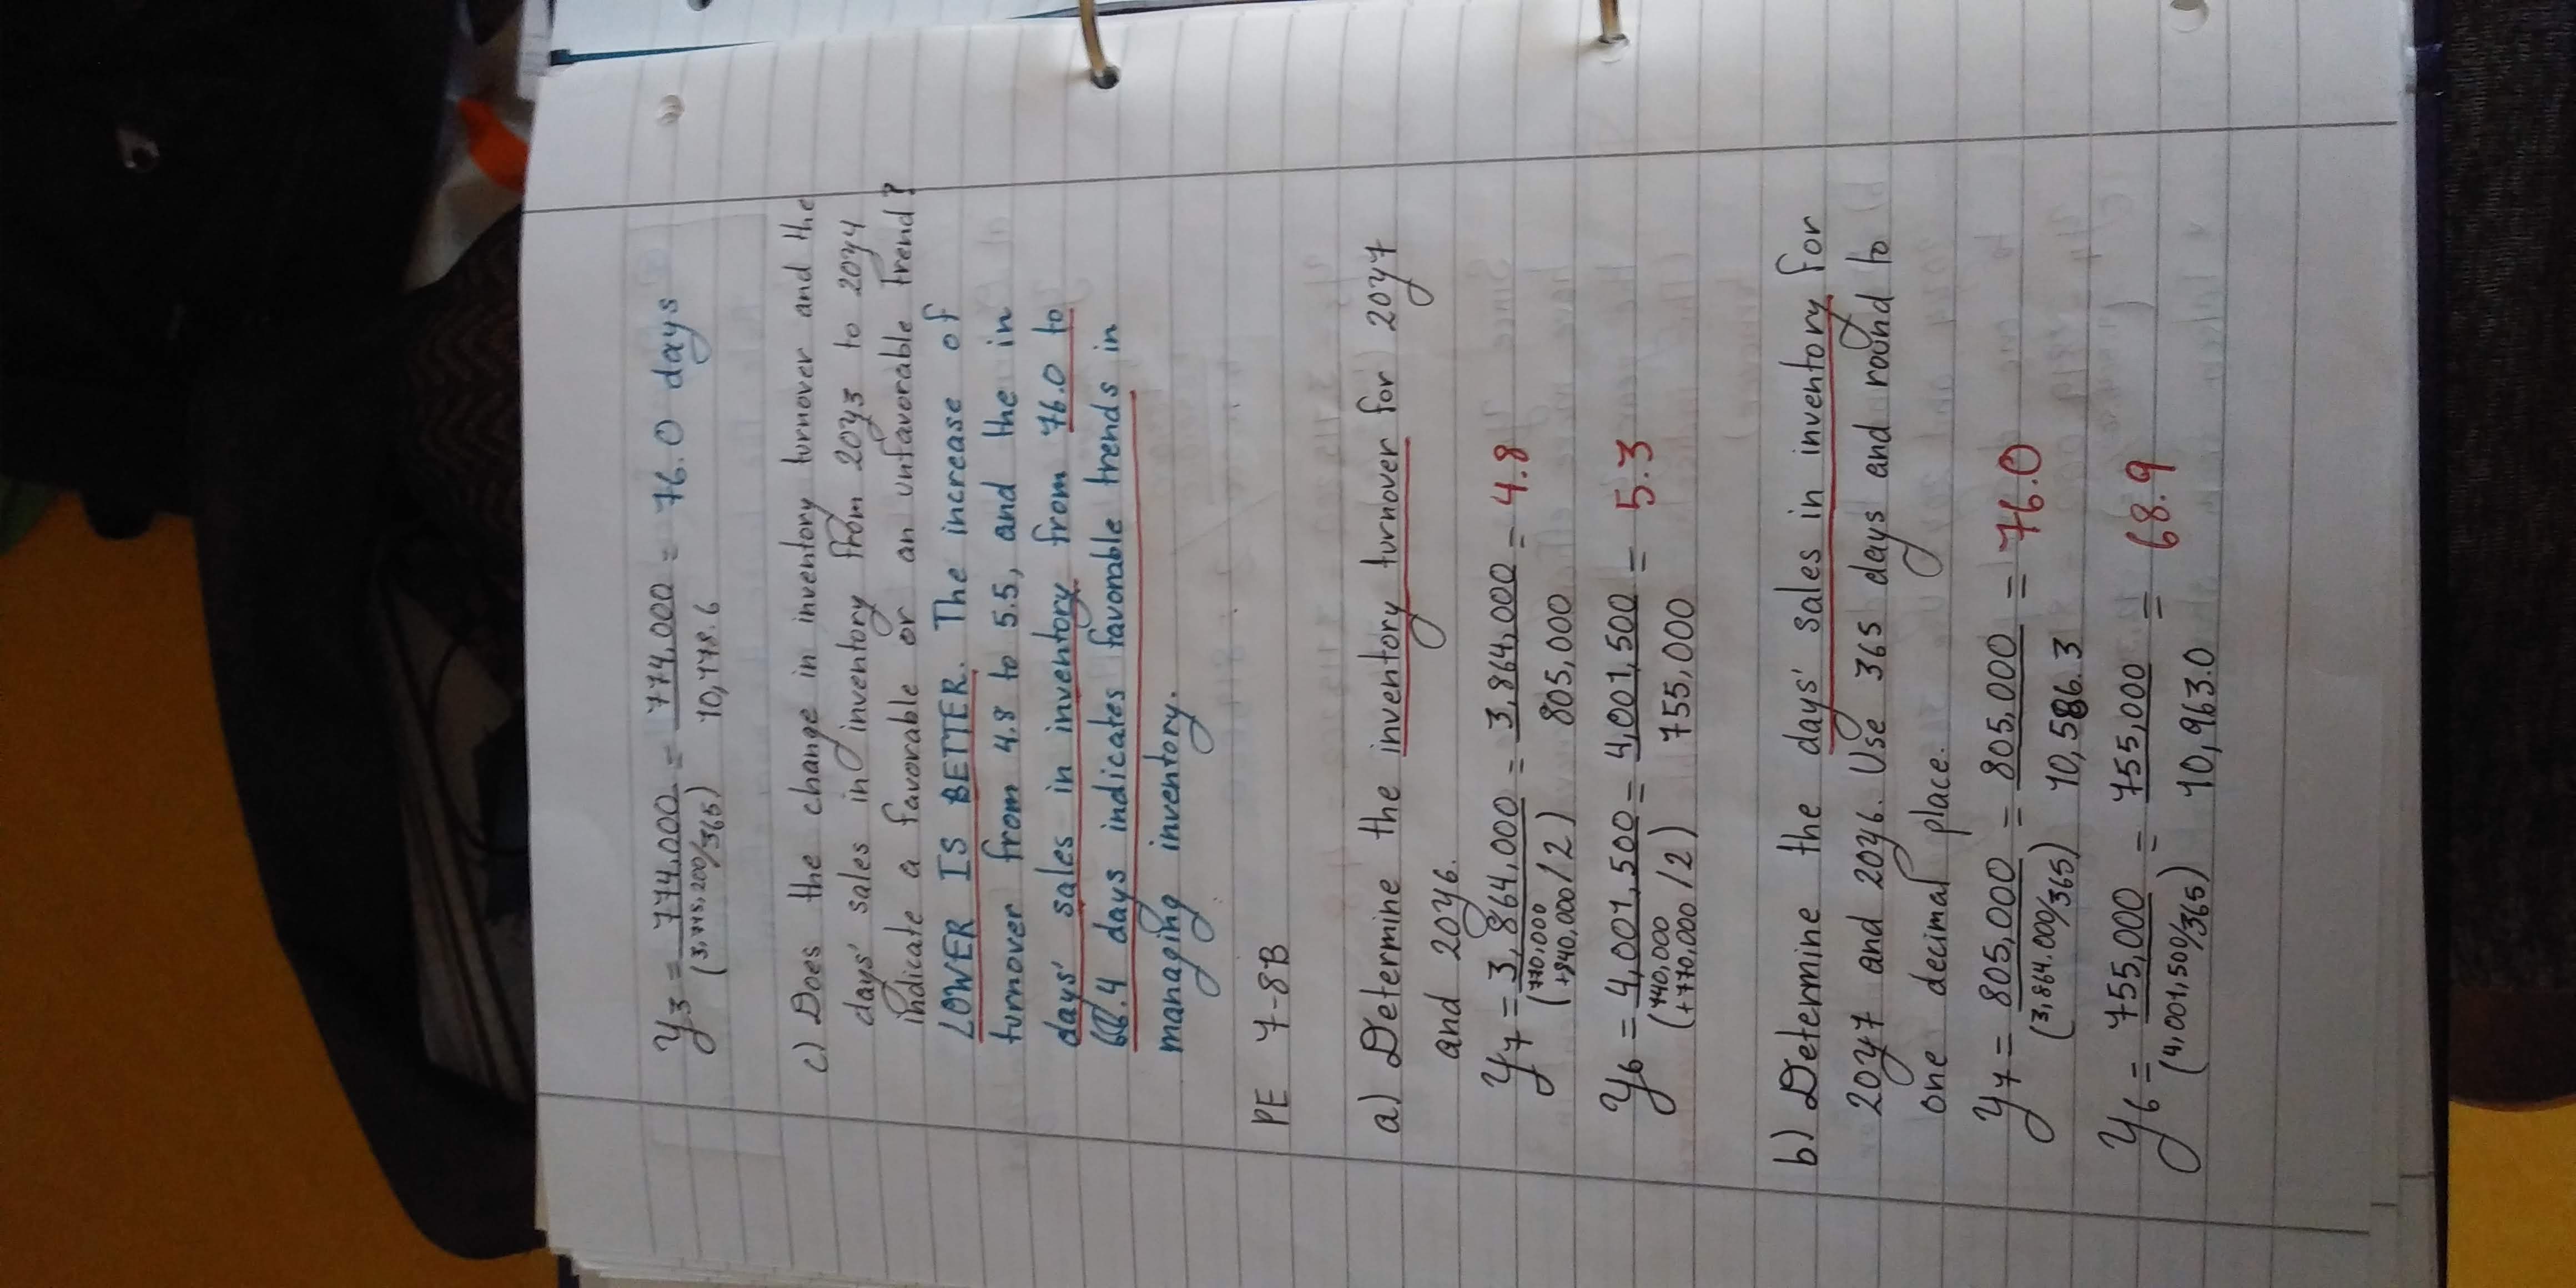 Y3 = 774,000 = 774,000 = 76.0 days
(3,715,200/365) 10,178.6
c) Does the change in inventory turnover and the
days' sales in inventory from 20Y3 to 20Y4
indicate a favorable or an unfavorable trend?
LOWER IS BETTER. The increase of
turnover from 4.8 to 5.5, and the in
days' sales in inventory from 76.0 to
66.4 days indicates favorable trends in
managing inventory.
PE 7-8B
a) Determine the inventory turnover for 20Y7
and 20Y6.
Y7 = 3,864,000 = 3,864,000 = 4.8
(770,000 805,000
+840,000/2)
Y6 = 4,001,500 = 4,001,500 = 5.3
(740,000 755,000
(+770,000/2)
b) Determine the days' sales in inventory for
20Y7 and 20Y6. Use 365 days and round to
one decimal place.
Y7 = 805,000 = 805,000 = 76.0
(3,864.000/365) 10,586.3
Y6 = 755,000 = 755,000 = 68.9
(4,001,500/365) 10,963.0